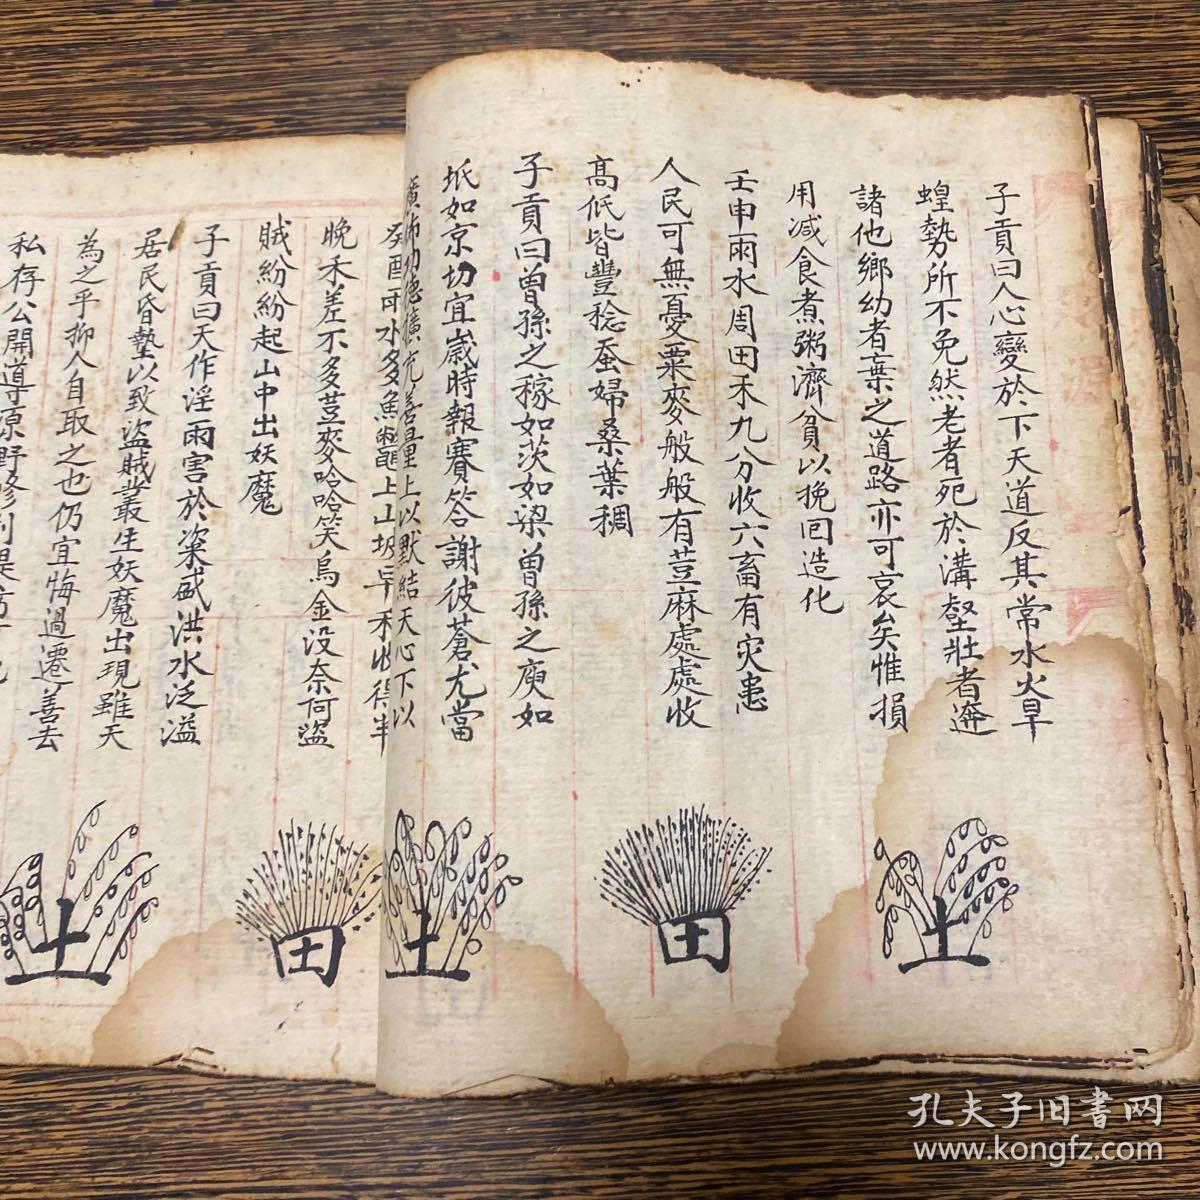 子貢曰人心變於下天道反其常水火旱
蝗勢所不免然老者死於溝壑壯者逃
諸他鄉幼者棄之道路亦可哀矣惟損
用減食煮粥濟貧以挽回造化
壬申雨水周田禾九分收六畜有灾患
人民可無憂粟麥般般有荳麻處處收
高低皆豐稔蚕婦桑葉稠
子貢曰曾孫之稼如茨如梁曾孫之庾如
坻如京切宜歲時報賽答謝彼蒼尤當
廣佈功德擴充善量上以默結天心下以
癸酉雨水多魚鼈上山坡早禾收得半
晚禾差不多荳麥哈哈笑烏金没奈何盜
賊紛紛起山中出妖魔
子貢曰天作淫雨害於粢盛洪水泛溢
居民昏墊以致盜賊叢生妖魔出現雖天
為之乎抑人自取之也仍宜悔過遷善去
私存公開導原野修利
土
田
土
田
土
孔夫子旧书网
www.kongfz.com